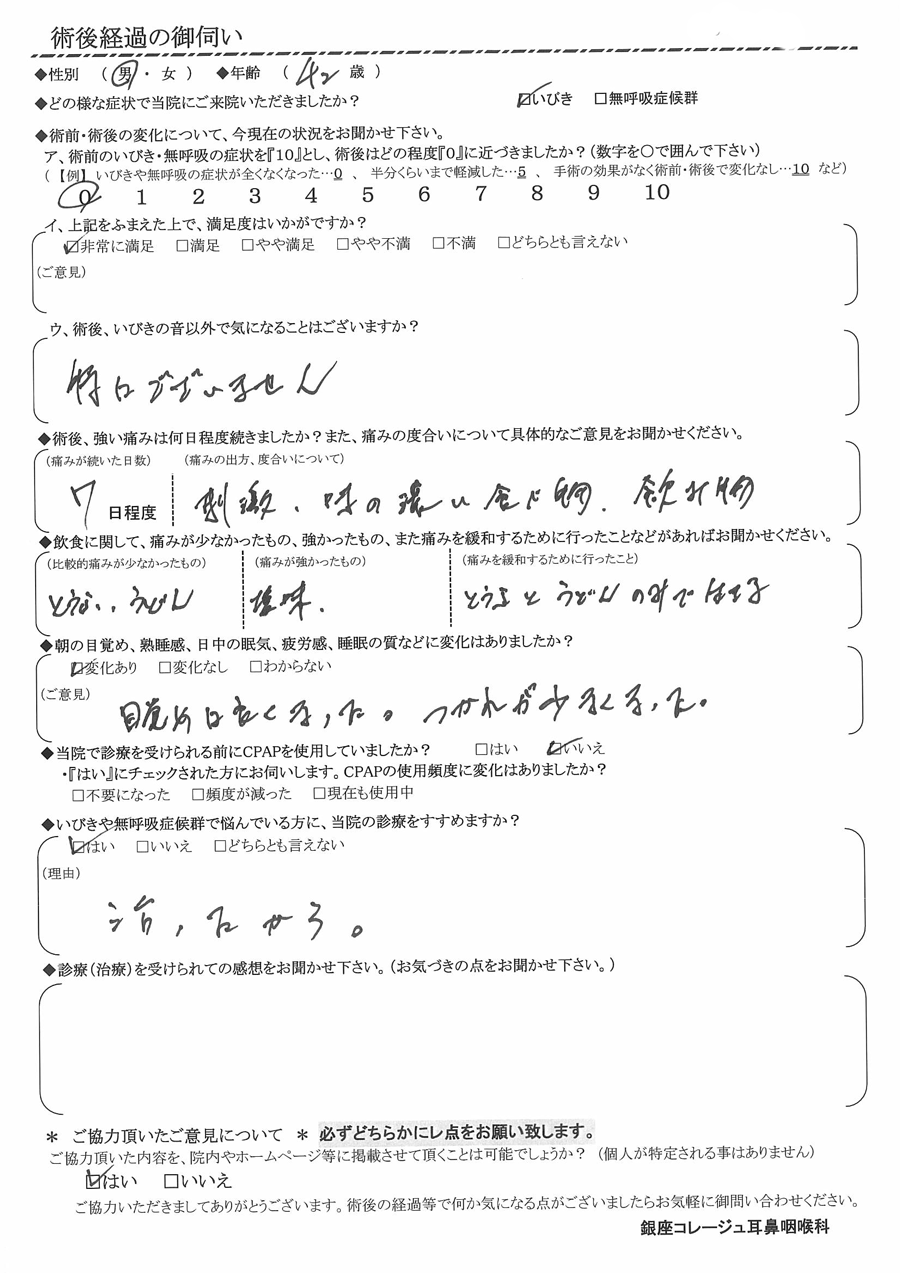 術後経過の御伺い
◆性別 （ 男 ・ 女 ） ◆年齢 （ 42 歳 ）
◆どの様な症状で当院にご来院いただきましたか？ ☑いびき □無呼吸症候群
◆術前・術後の変化について、今現在の状況をお聞かせ下さい。
ア、術前のいびき・無呼吸の症状を『10』とし、術後はどの程度『0』に近づきましたか？（数字を〇で囲んで下さい）
（【例】いびきや無呼吸の症状が全くなくなった…0 、 半分くらいまで軽減した…5 、 手術の効果がなく術前・術後で変化なし…10 など）
0 1 2 3 4 5 6 7 8 9 10
イ、上記をふまえた上で、満足度はいかがですか？
☑非常に満足 □満足 □やや満足 □やや不満 □不満 □どちらとも言えない
（ご意見）
ウ、術後、いびきの音以外で気になることはございますか？
特にございません
◆術後、強い痛みは何日程度続きましたか？また、痛みの度合いについて具体的なご意見をお聞かせください。
（痛みが続いた日数） （痛みの出方、度合いについて）
7 日程度 刺激、味の濃い食べ物、飲み物
◆飲食に関して、痛みが少なかったもの、強かったもの、また痛みを緩和するために行ったことなどがあればお聞かせください。
（比較的痛みが少なかったもの） （痛みが強かったもの） （痛みを緩和するために行ったこと）
うどん 塩味、 うどん のみで
◆朝の目覚め、熟睡感、日中の眠気、疲労感、睡眠の質などに変化はありましたか？
☑変化あり □変化なし □わからない
（ご意見）
目覚めは良くなった。つかれが少なくなった。
◆当院で診療を受けられる前にCPAPを使用していましたか？ □はい ☑いいえ
・『はい』にチェックされた方にお伺いします。CPAPの使用頻度に変化はありましたか？
□不要になった □頻度が減った □現在も使用中
◆いびきや無呼吸症候群で悩んでいる方に、当院の診療をすすめますか？
☑はい □いいえ □どちらとも言えない
（理由）
治ったから。
◆診療（治療）を受けられての感想をお聞かせ下さい。（お気づきの点をお聞かせ下さい。）
＊ ご協力頂いたご意見について ＊ 必ずどちらかにレ点をお願い致します。
ご協力頂いた内容を、院内やホームページ等に掲載させて頂くことは可能でしょうか？ （個人が特定される事はありません）
☑はい □いいえ
ご協力いただきましてありがとうございます。術後の経過等で何か気になる点がございましたらお気軽に御問い合わせください。
銀座コレージュ耳鼻咽喉科